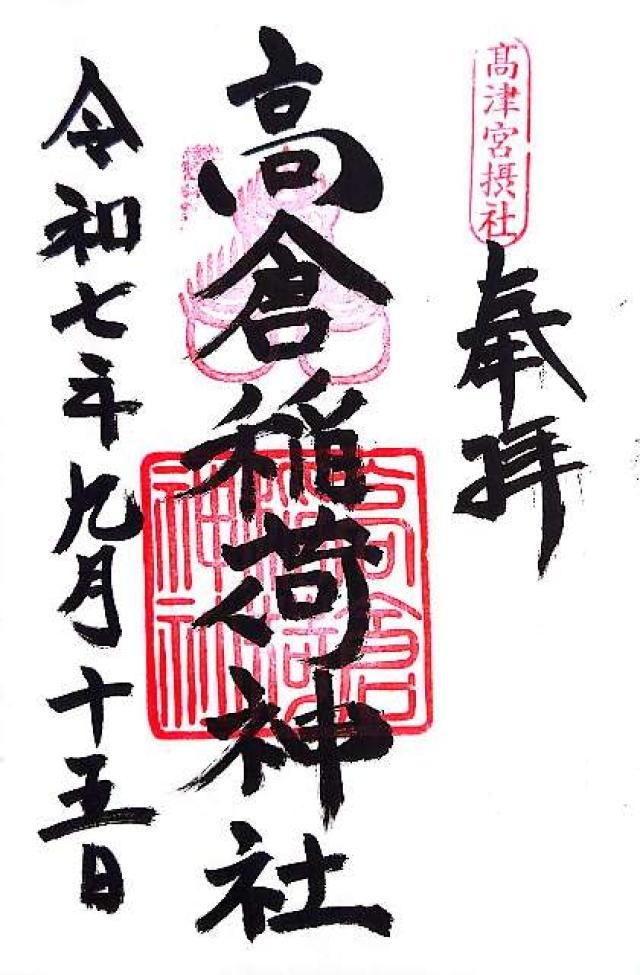 髙津宮摂社
奉拝
高倉稲荷神社
高倉稲荷神社
令和七年九月十五日